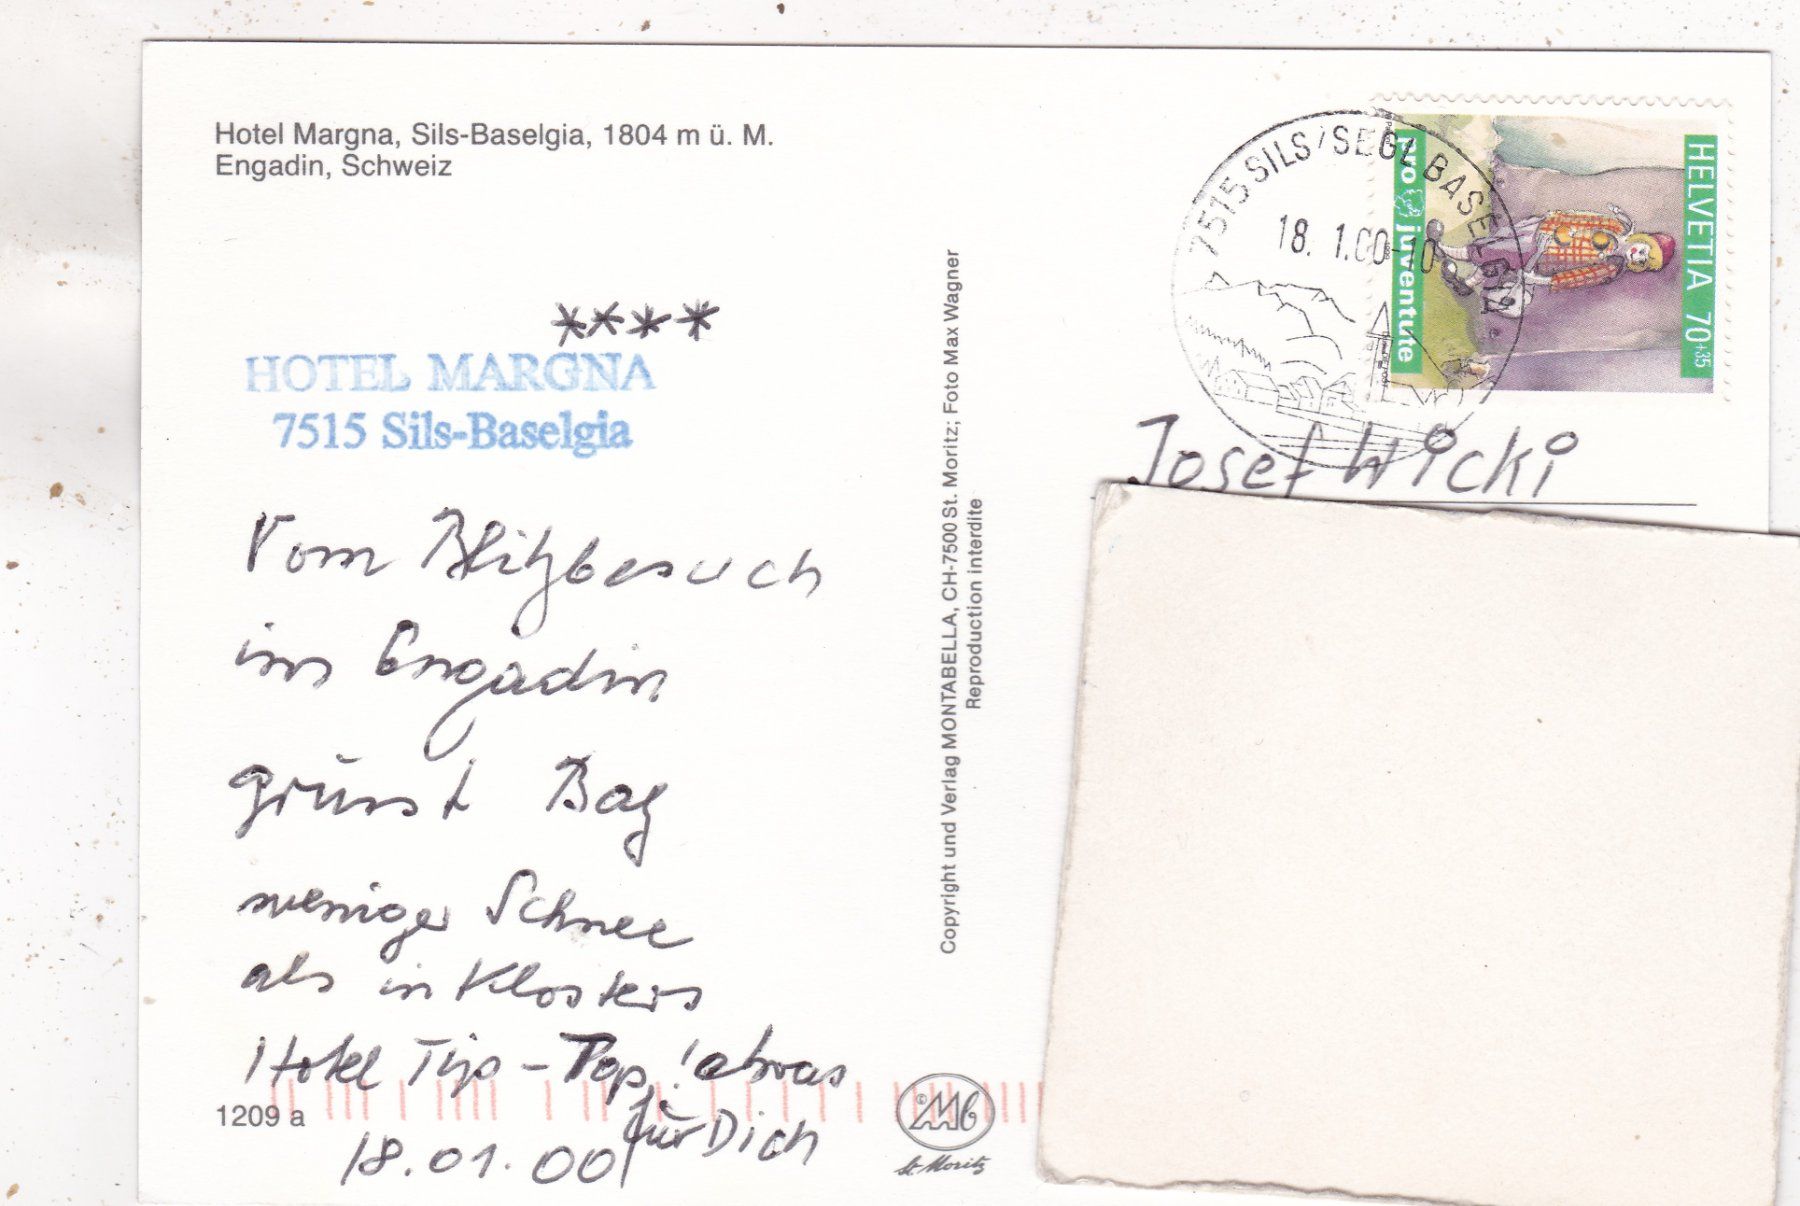 Hotel Margna, Sils-Baselgia, 1804 m ü. M.
Engadin, Schweiz
****
HOTEL MARGNA
7515 Sils-Baselgia
Vom Blitzbesuch
im Engadin
grüsst
weniger Schnee
als in Klosters
Hotel Tip-Top! etwas
für Dich
1209 a
18.01.00
Copyright und Verlag MONTABELLA, CH-7500 St. Moritz; Foto Max Wagner
Reproduction interdite
© Mb
St. Moritz
7515 SILS/SEGL BASELGIA
18.1.00-10
pro juventute
HELVETIA 70+35
Josef Wicki